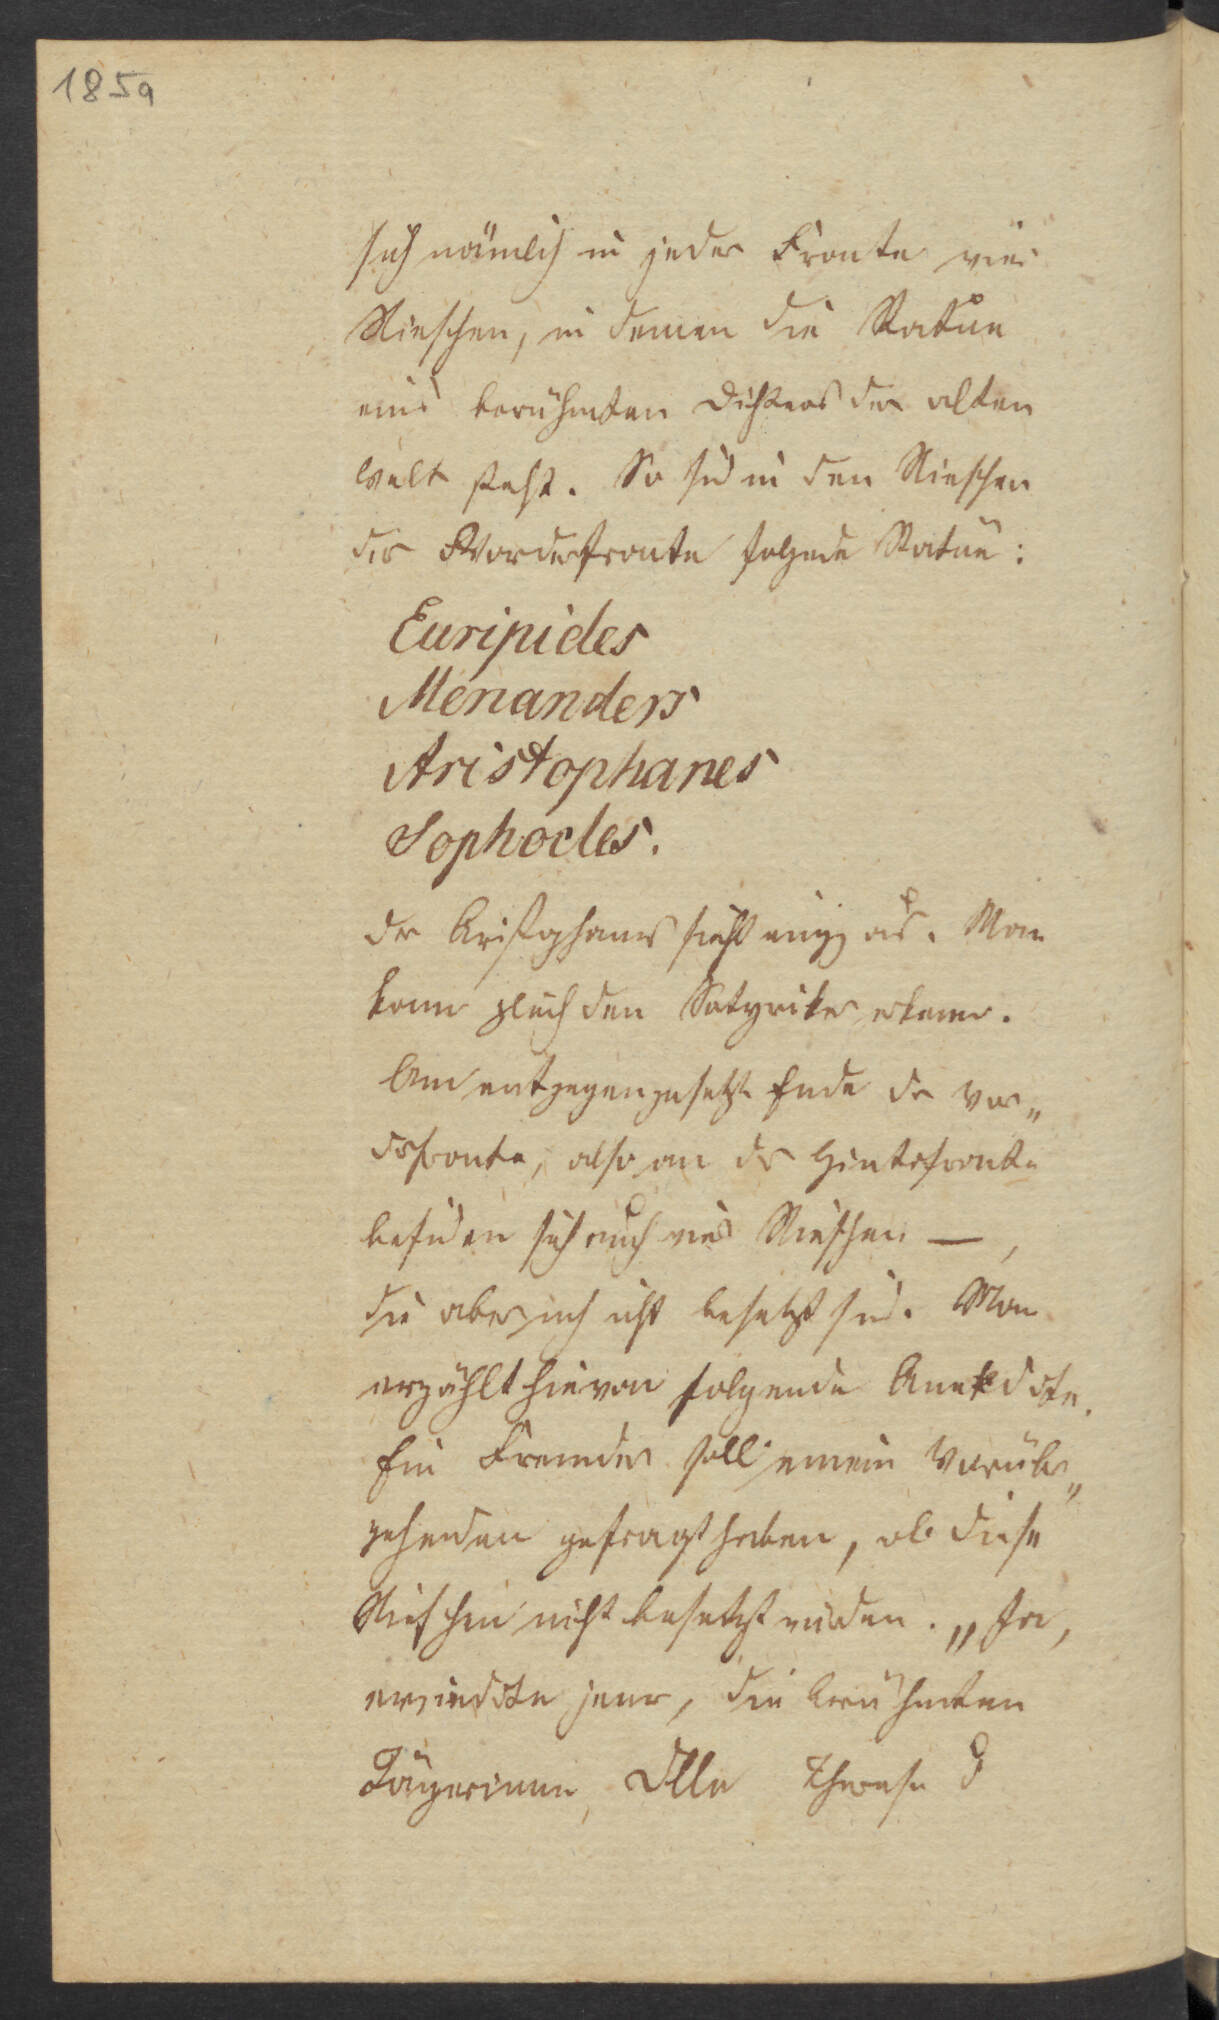 185a
sich nämlich in jeder Fronte vier
Nieschen, in denen die Statue
eins berühmten Dichters der alten
Welt steht. So sid in den Nieschen
der Vorderfronte folgede Statue:
Euripides
Menanders
Aristophanes
Sophocles.
der Aristophanes sieht aus. Man
kann gleich den Satyriker erkenen.
Am entgegengesetzte Ende der Vor„
derfronte, also an der Hinterfronte
befiden sich auch vier Nieschen —,
die aber noch nicht besetzt sind. Man
erzählt hievon folgende Anekdote.
Ein Fremder soll einem Vorüber„
gehenden gefragt haben, ob diese
Nieschen nicht besetzt würden. „Ja,
erwiederte jener, die berühmten
Tänzerinnen, Dlle Therese